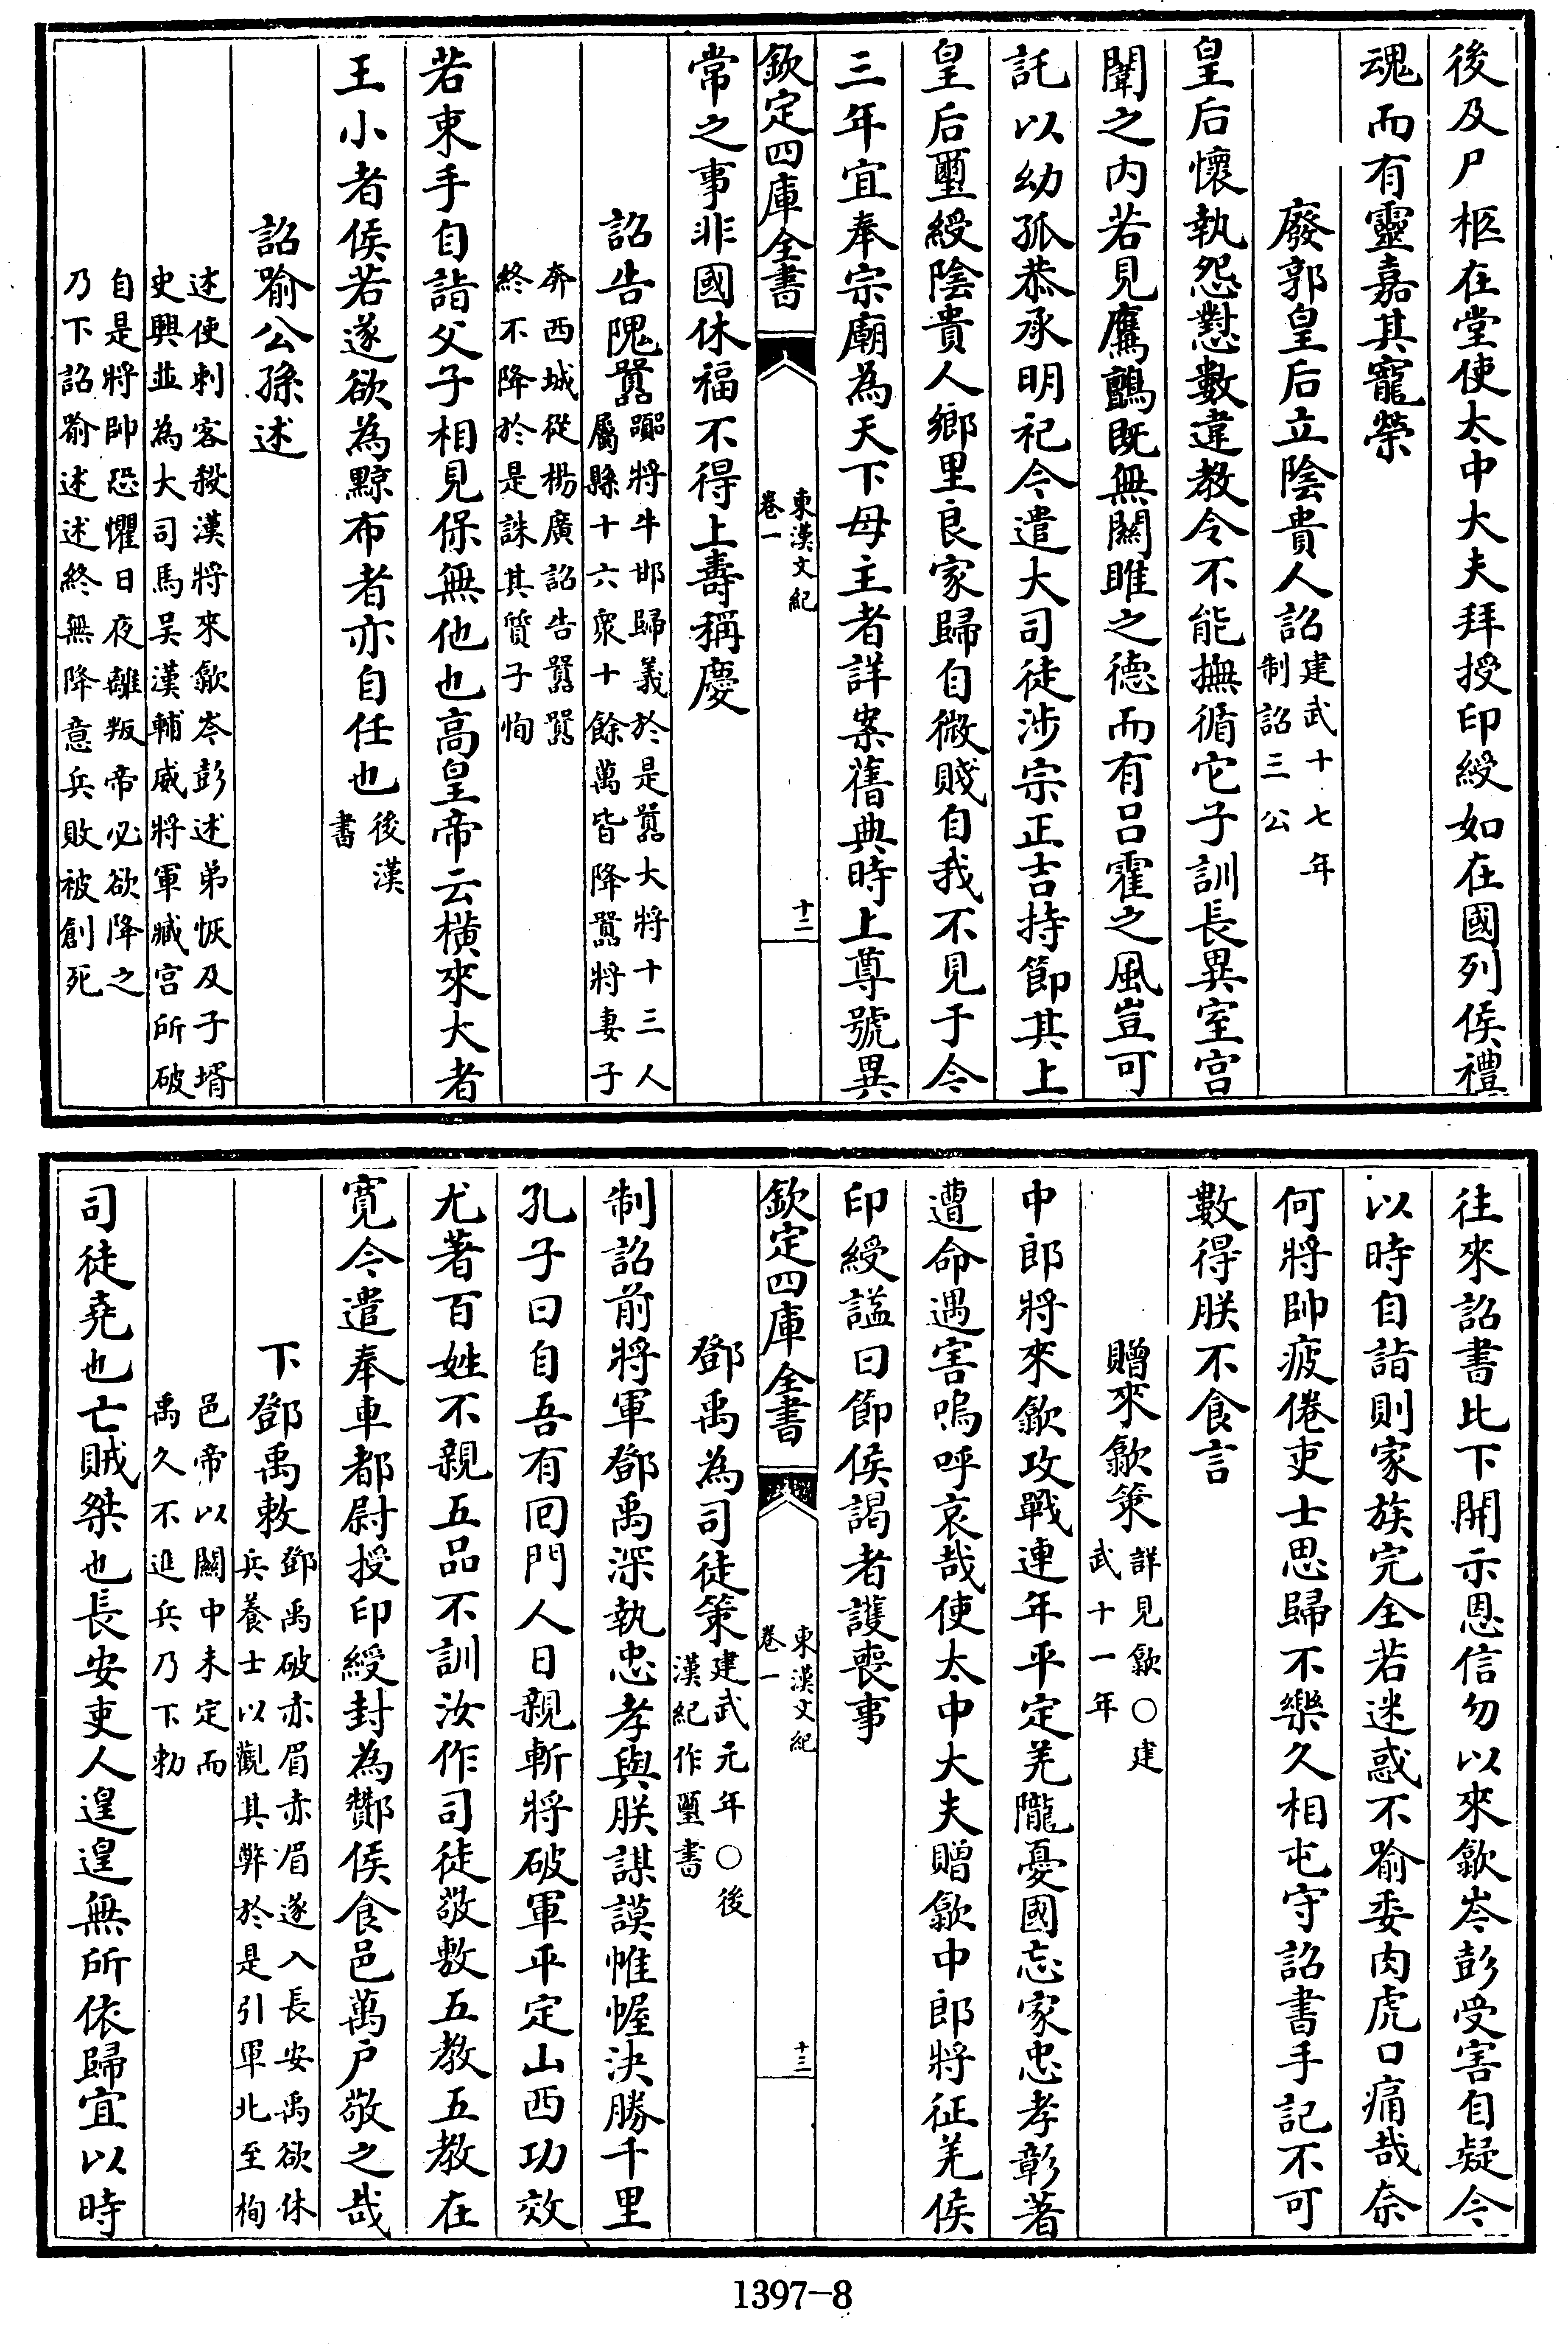 後及尸柩在堂使太中大夫拜授印綬如在國列侯禮
魂而有靈嘉其寵榮
廢郭皇后立陰貴人詔建武十七年
制詔三公
皇后懷執怨懟數違教令不能撫循它子訓長異室宫
闈之内若見鷹鸇既無關雎之德而有吕霍之風豈可
託以幼孤恭承明祀今遣大司徒涉宗正吉持節其上
皇后璽綬陰貴人鄉里良家歸自微賤自我不見于今
三年宜奉宗廟為天下母主者詳案舊典時上尊號異
欽定四庫全書
東漢文紀
卷一
十二
常之事非國休福不得上壽稱慶
詔告隗囂囂將牛邯歸義於是囂大將十三人
屬縣十六衆十餘萬皆降囂將妻子
奔西城從楊廣詔告囂囂
終不降於是誅其質子恂
若束手自詣父子相見保無他也高皇帝云橫來大者
王小者侯若遂欲為黥布者亦自任也後漢
書
詔喻公孫述
述使刺客殺漢將來歙岑彭述弟恢及子壻
史興並為大司馬吴漢輔威將軍臧宫所破
自是將帥恐懼日夜離叛帝必欲降之
乃下詔喻述述終無降意兵敗被創死
往來詔書比下開示恩信勿以來歙岑彭受害自疑今
以時自詣則家族完全若迷惑不喻委肉虎口痛哉奈
何將帥疲倦吏士思歸不樂久相屯守詔書手記不可
數得朕不食言
贈來歙策詳見歙○建
武十一年
中郎將來歙攻戰連年平定羌隴憂國忘家忠孝彰著
遭命遇害嗚呼哀哉使太中大夫贈歙中郎將征羌侯
印綬諡曰節侯謁者護喪事
欽定四庫全書
東漢文紀
卷一
十三
鄧禹為司徒策建武元年○後
漢紀作璽書
制詔前將軍鄧禹深執忠孝與朕謀謨帷幄決勝千里
孔子曰自吾有囘門人日親斬將破軍平定山西功效
尤著百姓不親五品不訓汝作司徒敬敷五教五教在
寛今遣奉車都尉授印綬封為酇侯食邑萬户敬之哉
下鄧禹敕鄧禹破赤眉赤眉遂入長安禹欲休
兵養士以觀其弊於是引軍北至栒
邑帝以關中未定而
禹久不進兵乃下勅
司徒堯也亡賊桀也長安吏人遑遑無所依歸宜以時
1397-8